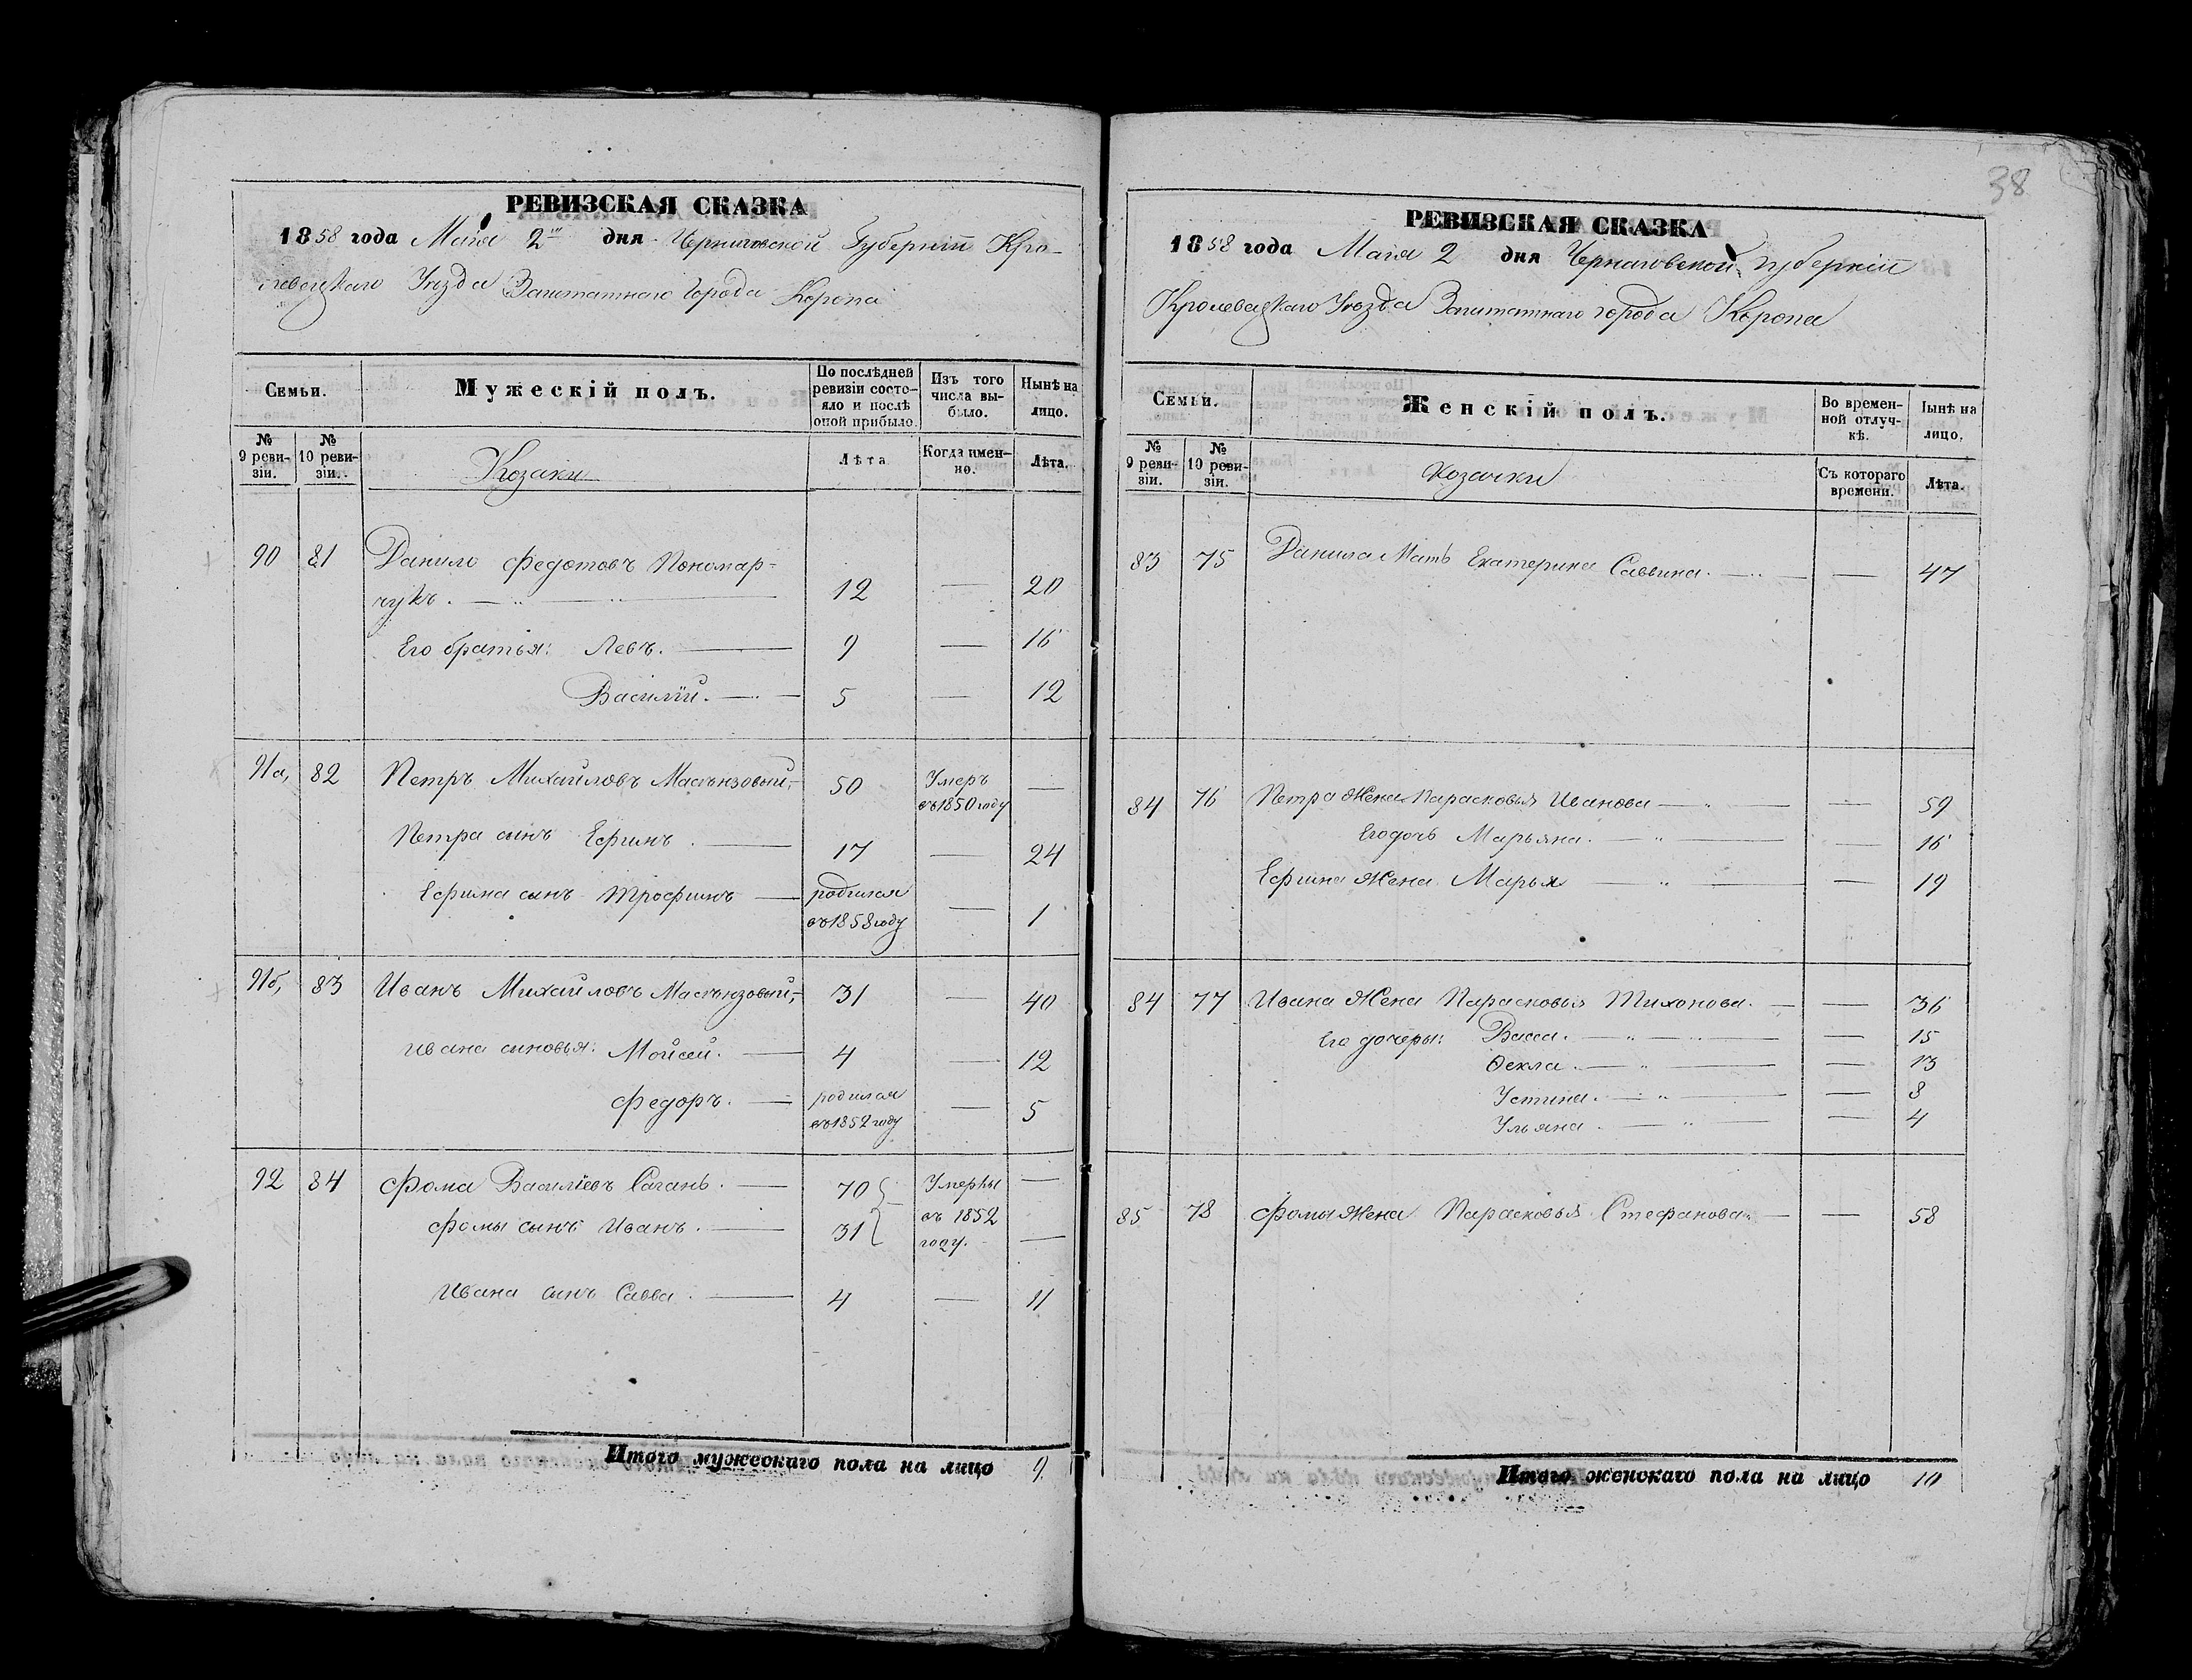 38
РЕВИЗСКАЯ СКАЗКА
1858 года Маія 2го дня Черниговской Губерніи Кро-
левецкаго Уѣзда Заштатнаго Города Коропа
Семьи.
Мужескій полъ.
По послѣдней ревизіи состо-яло и послѣ оной прибыло.
Изъ того числа вы-было.
Нынѣ на лицо.
№ 9 реви-зіи.
№ 10 реви-зіи.
Козаки
Лѣта
Когда имен-но.
Лѣта.
90 81 Данило Федотовъ Пономар-
чукъ. 12 — 20
Его братья: Левъ. 9 — 16
Василій. 5 — 12
91а, 82 Петръ Михайловъ 50 Умеръ —
въ 1850 году
Петра сынъ Ефимъ. 17 — 24
Ефима сынъ Трофимъ родился — 1
въ 1858 году
91б, 83 Иванъ Михайловъ 31 — 40
Ивана сыновья: Мойсей. 4 — 12
Федоръ. родился — 5
въ 1852 году
92 84 Фома Василіевъ Саганъ. 70 Умерли —
Фомы сынъ Иванъ. 31 въ 1852
году. —
Ивана сынъ Савва. 4 — 11
Итого мужескаго пола на лицо 9.
РЕВИЗСКАЯ СКАЗКА
1858 года Маія 2 дня Черниговской Губерніи
Кролевецкаго Уѣзда Заштатнаго города Коропа
Семьи.
Женскій полъ.
Во времен-ной отлуч-кѣ.
Нынѣ на лицо.
№ 9 реви-зіи.
№ 10 реви-зіи.
Козачки
Съ котораго времени.
Лѣта.
83 75 Данила Мать Екатерина Саввина. — 47
84 76 Петра Жена Парасковья Иванова — 59
Его дочь Марьяна. — 16
Ефима Жена Марья — 19
84 77 Ивана Жена Парасковья Тихонова. — 36
Его дочеры: Васса. — 15
Ѳекла. — 13
Устина. — 8
Ульяна. — 4
85 78 Фомы Жена Парасковья Стефанова. — 58
Итого женскаго пола на лицо 10